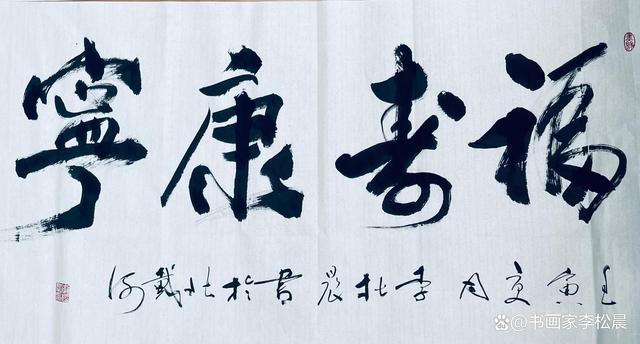 福寿康寧
壬寅夏月李松晨書於北戴河
@书画家李松晨